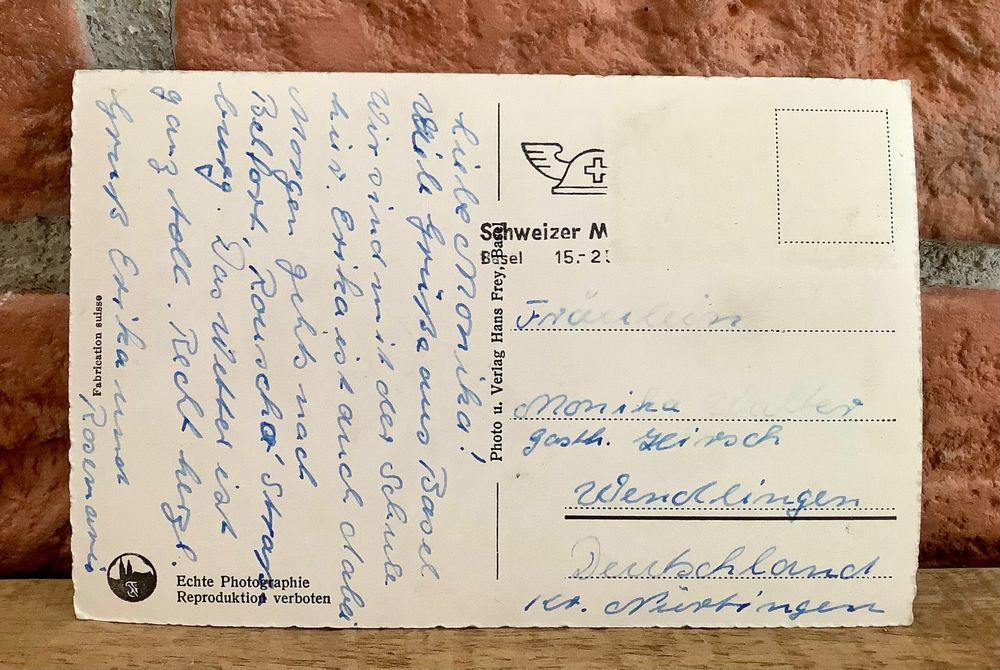 Liebe Monika!
Viele Grüße aus Basel
Wir sind mit der Schule
hier. Erika ist auch dabei
Morgen gehts nach
Belfort, Straß-
burg. Das Wetter ist
ganz toll. Recht herzl.
Gruß Erika und
Rosemarie
Fabrication suisse
Echte Photographie
Reproduktion verboten
Photo u. Verlag Hans Frey, Basel
Schweizer M
Basel 15.-2
Fräulein
Monika
Gasth. Hirsch
Wendlingen
Deutschland
Kr. Nürtingen